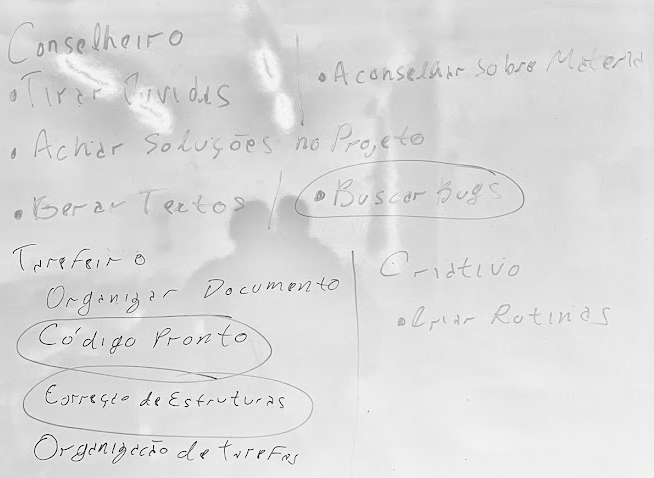 Conselheiro
• Tirar Dúvidas
• Aconselhar Sobre Materia
• Achar Soluções no Projeto
• Gerar Textos
• Buscar Bugs
Tarefeiro
Organizar Documento
Código Pronto
Correção de Estruturas
Organização de tarefas
Criativo
• Criar Rotinas